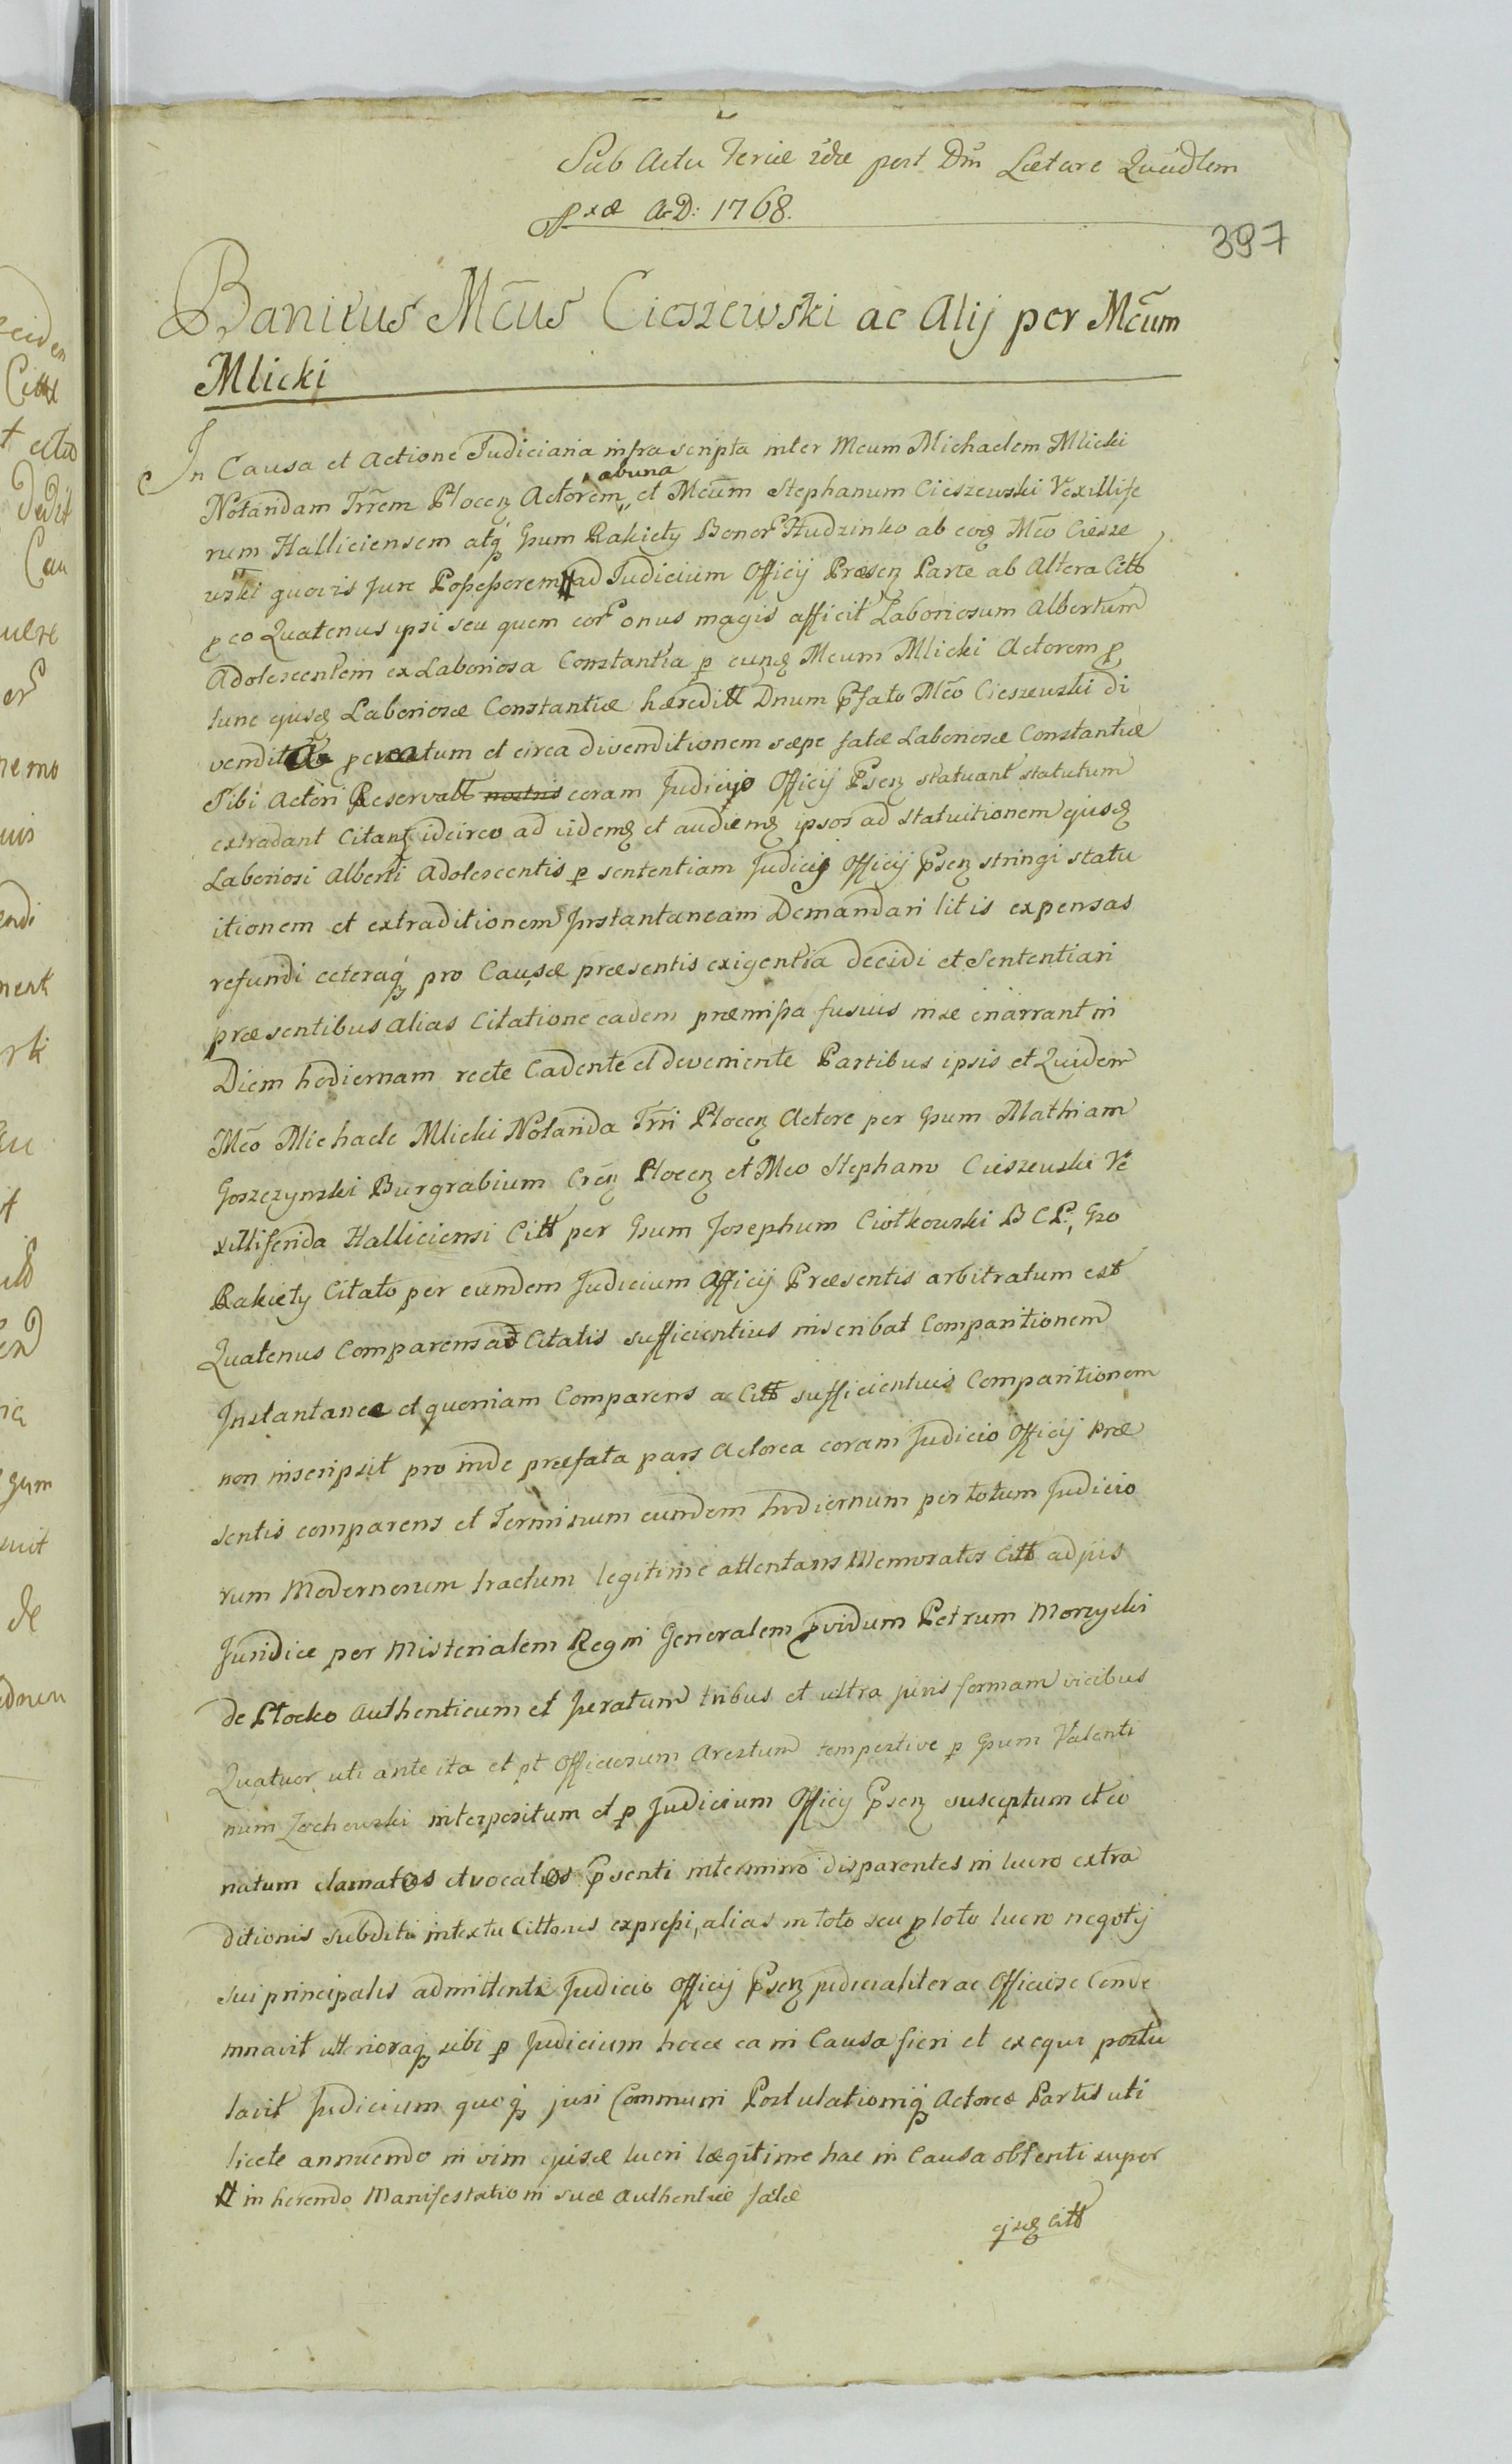 Sub Actu Feriæ 2dæ post Dm̃ Lætare Quadlem
pxæ A.D: 1768.
397
Banitus Mcus Cieszewski ac Alij per Mcum
Mlicki
In Causa et Actione Judiciaria infrascripta inter Mcum Michaelem Mlicki
Notarium Trrem Plocen Actorem ab una et Mcum Stephanum Cieszewski Vexillife
rum Halliciensem atq Gsum Rakiety Bonor Studzinko ab eod Mco Ciesze
wski quovis Jure Possessorem # ad Judicium Officij Præsen Parte ab Altera Citt
p eo Quatenus ipsi seu quem eor onus magis afficit Laboriosum Albertum
Adolescentem ex Laboriosa Constantia p eund Mcum Mlicki Actorem p
tunc ejusd Laboriosæ Constantiæ hæreditt Dnum pfato Mco Cieszewski di
vendita procreatum et circa divenditionem sæpe fatæ Laboriosæ Constantiæ
sibi Actori Reservatt nostris coram Judicijo Officij Psen statuant statutum
extradant Citan idcirco ad vidend et audiend ipsos ad statuitionem ejusd
Laboriosi Alberti Adolescentis p sententiam Judicij Officij Psen stringi statu
itionem et extraditionem Instantaneam Demandari litis expensas
refundi ceteraq pro Causæ præsentis exigentia decidi et Sententiari
præsentibus alias Citatione eadem præmissa fusius in se enarrant in
Diem hodiernam recte Cadente et deveniente Partibus ipsis et Quidem
Mco Michaele Mlicki Notario Trri Plocen Actore per Gsum Mathiam
Goszczynski Burgrabium Cren Plocen et Mco Stephano Cieszewski Ve
xillifero Halliciensi Citt per Gsum Josephum Ciołkowski B C P, Gso
Rakiety Citato per eumdem Judicium Officij Præsentis arbitratum est
Quatenus Comparens ad Citatis sufficientius inscribat Comparitionem
Instantanee et quoniam Comparens a Citt sufficientius Comparitionem
non inscripsit pro inde præfata pars Actorea coram Judicio Officij Præ
sentis comparens et Terminum eumdem hodiernum per totum Judicio
rum Modernorum tractum legitime attentans Memoratos Citt adpüs
Juridice per Misterialem Regni Generalem pvidum Petrum Morzycki
de Plocko Authenticum et Juratum tribus et ultra juris formam vicibus
Quatuor uti ante ita et pt Officiosum Arestum tempestive p Gsum Valenti
num Zochowski interpositum et p Judicium Officij Psen susceptum et co
natum clamatos et vocatos psenti in termino disparentes in lucro extra
ditionis subditi in textu Cittonis expressi, alias in toto seu p toto lucro negotij
sui principalis admittente Judicio Officij Psen judicialiter ac Officiose Conde
mnavit ulterioraq sibi p Judicium hocce ea in Causa fieri et exequi postu
lavit Judicium quoq juri Communi Postulationiq Actoreæ Partis uti
licete annuendo in vim ejusd lucri lægitime hac in Causa obtenti super
# in herendo Manifestationi suæ Authenticæ fatæ
ejusd Citt